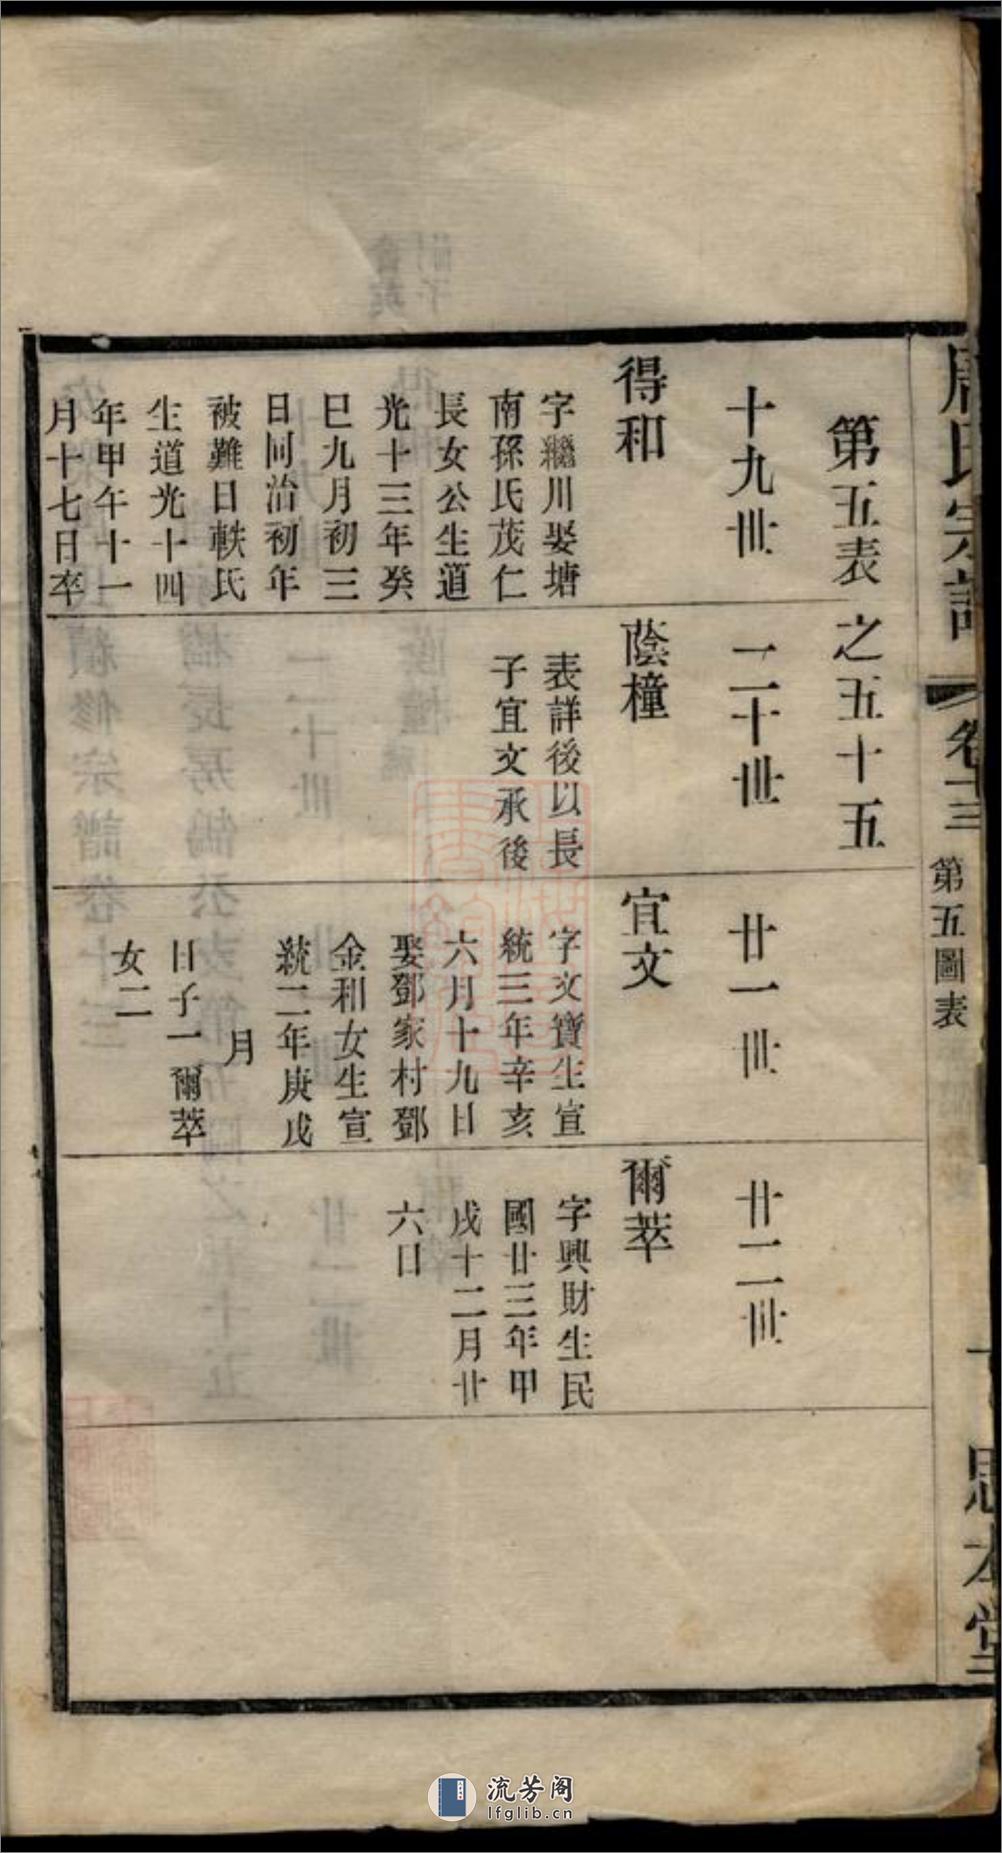 周氏宗譜 卷十三 第五圖表 思本堂
第五表之五十五
十九世
得和
字繼川娶塘
南孫氏茂仁
長女公生道
光十三年癸
巳九月初三
日同治初年
被難日軼氏
生道光十四
年甲午十一
月十七日卒
二十世
蔭橦
表詳後以長
子宜文承後
廿一世
宜文
字文寶生宣
統三年辛亥
六月十九日
娶鄧家村鄧
金和女生宣
統二年庚戌
月
日子一爾萃
女二
廿二世
爾萃
字興財生民
國廿三年甲
戌十二月廿
六日
流芳阁
lfglib.cn